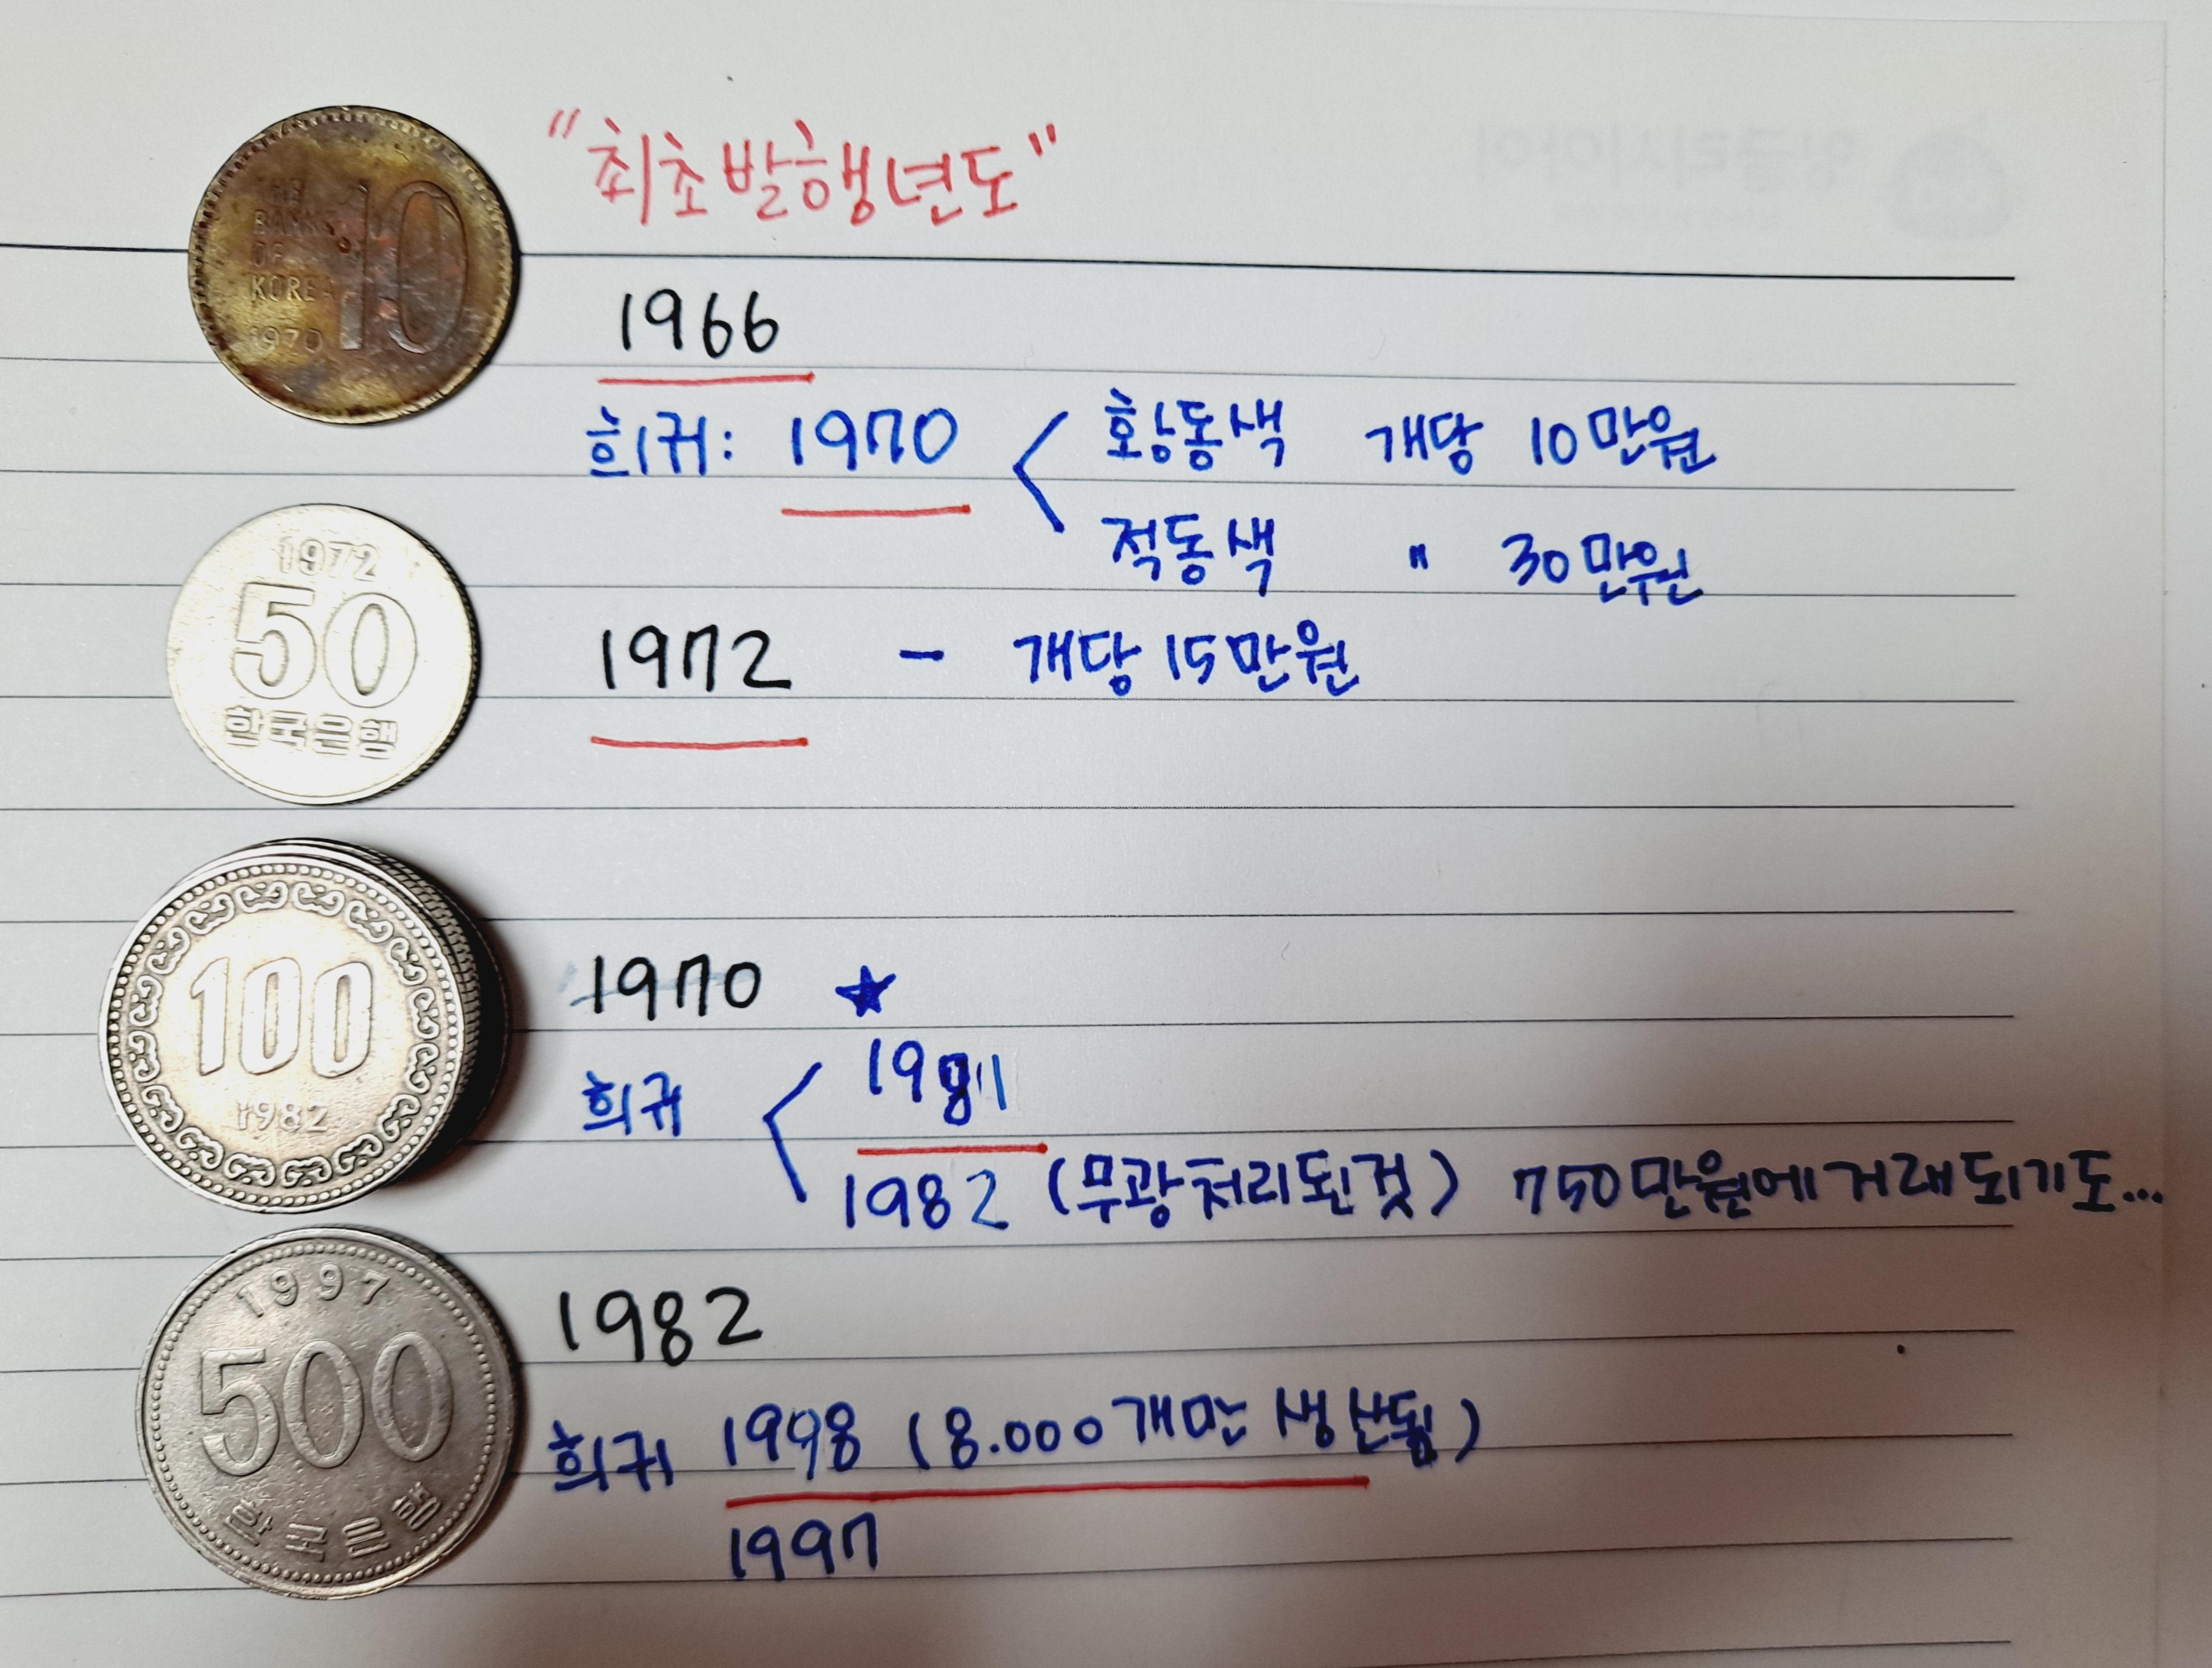 "최초발행년도"
THE
BANK
OF
KOREA
1970
10
1966
희귀: 1970 < 황동색 개당 10만원
적동색 " 30만원
1972
50
한국은행
1972 - 개당 15만원
100
1982
1970 ★
희귀 < 1981
1982 (무광처리된것) 750만원에거래되기도...
1997
500
한국은행
1982
희귀 1998 (8.000개만 생산됨)
1997